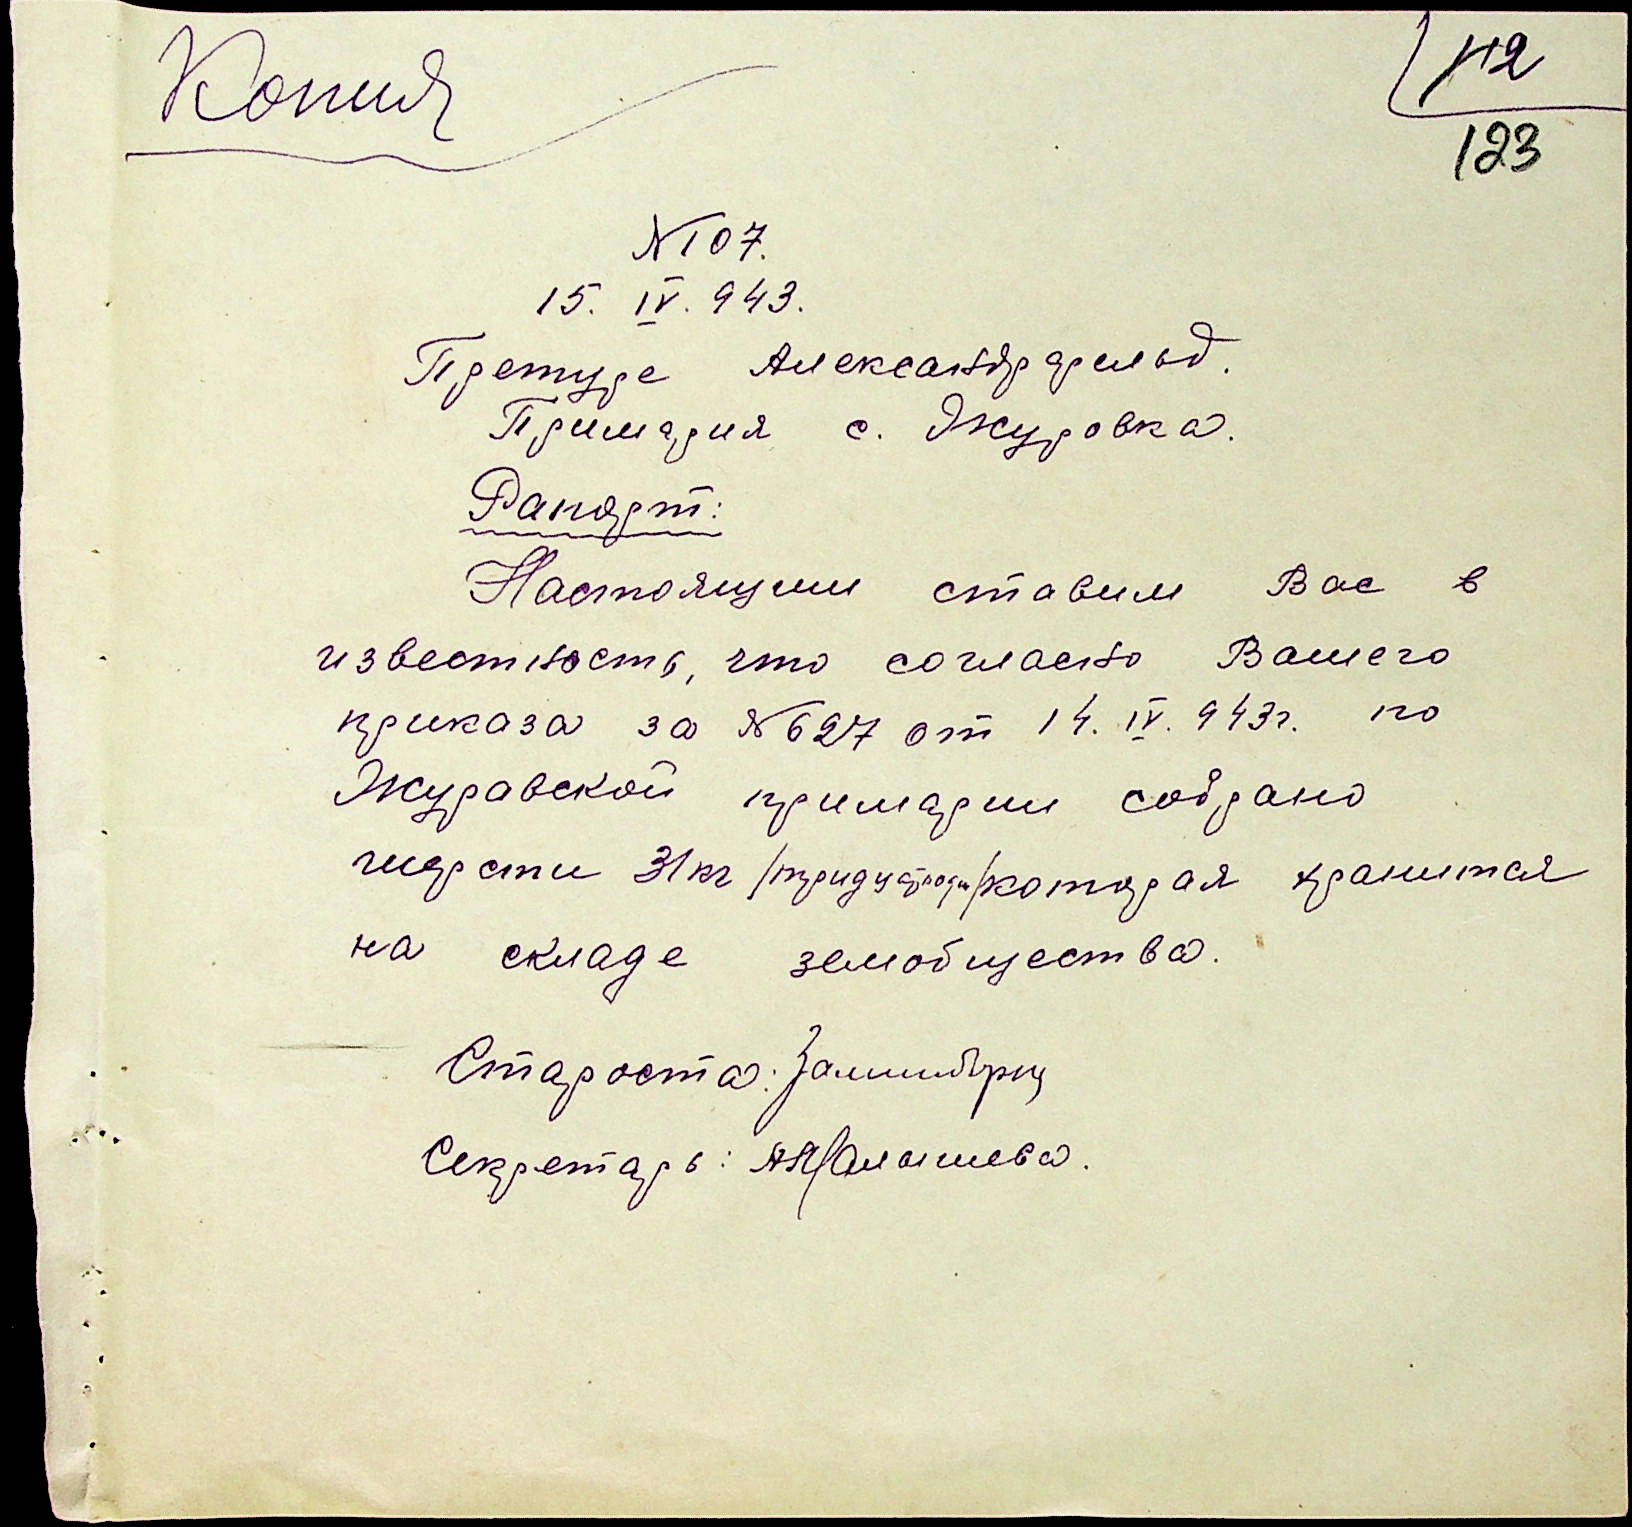 Копия
112
123
№107.
15. IV. 943.
Претуре Александрфельд.
Примария с. Журовка.
Рапорт:
Настоящим ставим Вас в
известность, что согласно Вашего
приказа за №627 от 14. IV. 943г. по
Журавской примарии собрано
шерсти 31кг которая хранится
на складе земобщества.
Староста:
Секретарь: АМалышева.